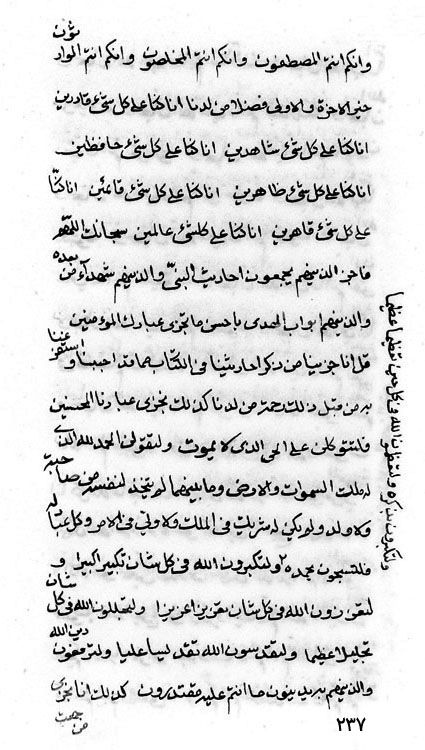 وانكم انتم المصطفون وانكم انتم المخلصون وانكم انتم الوارثون
خير الاخرة والاولى فضلا من لدنا انا كنا على كل شئ قادرين
انا كنا على كل شئ شاهدين انا كنا على كل شئ حافظين
انا كنا على كل شئ ظاهرين انا كنا على كل شئ قائمين انا كنا
على كل شئ قاهرين انا كنا على كلشئ عالمين سبحانك اللهم
فاجز الذينهم يجمعون احاديث البيّ والذينهم شهدآء من بعده
والذينهم ابواب الهدى باحسن ما تجزى عبادك المؤمنين
قل انا جزينا من ذكر احاديثنا فى الكتاب عما قد احببنا و
به من قبل ذلك رحمة من لدنا كذلك نجزى عبادنا المحسنين
فلتتوكلن على الحى الذى لا يموت ولتقولن الحمد لله الذى
له ملك السموات والارض وما بينهما لم يتخذ لنفسه من صاحبة
ولا ولد ولم يكن له شريك فى الملك ولا ولي فى الامر وكل عباد له
فلتسبحون بحمده ولتكبرون الله فى كل شان تكبيرا كبيرا و
لتعززون الله فى كل شان تعزيزا عزيزا ولتجللون الله فى كل شان
تجليلا عظيما ولتقدسون الله تقديسا عليا ولترفعون دين الله
والذينهم بدينه يدينون ما انتم عليه مقتدرون كذلك انا نجزى
من
٢٣٧
ولتعظمون الله فى كل حين تعظيما عظيما